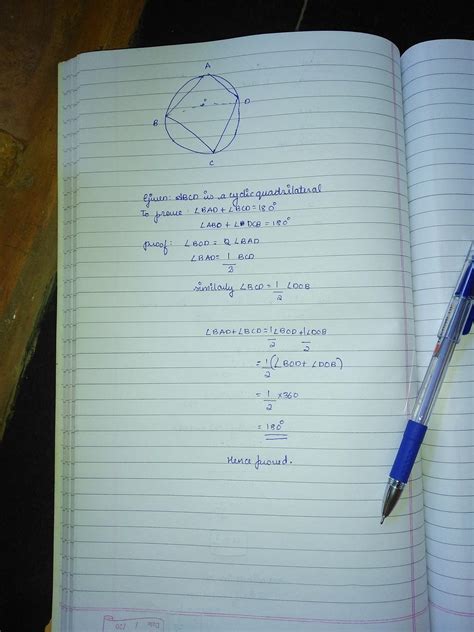 A
B
O
D
C
Given: ABCD is a cyclic quadrilateral
To prove: ∠BAD+∠BCD=180°
∠ABD+∠DCB=180°
proof: ∠BOD = 2 ∠BAD
∠BAD= 1/2 BCD
similarly ∠BCD= 1/2 ∠DOB
∠BAD+∠BCD= 1/2 ∠BOD + 1/2 ∠DOB
= 1/2 (∠BOD+ ∠DOB)
= 1/2 ×360
= 180°
Hence proved.